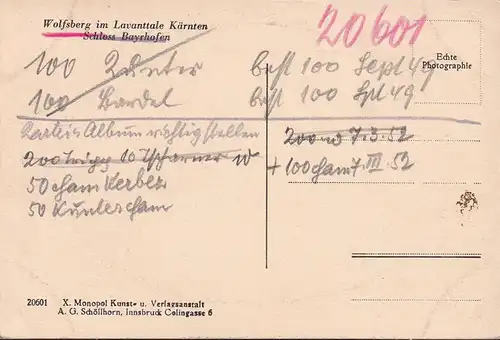 Wolfsberg im Lavanttale Kärnten
Schloss Bayrhofen
20601
Echte
Photographie
100 best 100 Sept 49
100 Bardel best 100 Spt 49
Karte in Album richtig stellen
200 10 7.3.52
50 cham Kerbez + 100 cham 7.III.52
50 cham
20601 X. Monopol Kunst- u. Verlagsanstalt
A. G. Schöllhorn, Innsbruck Colingasse 6